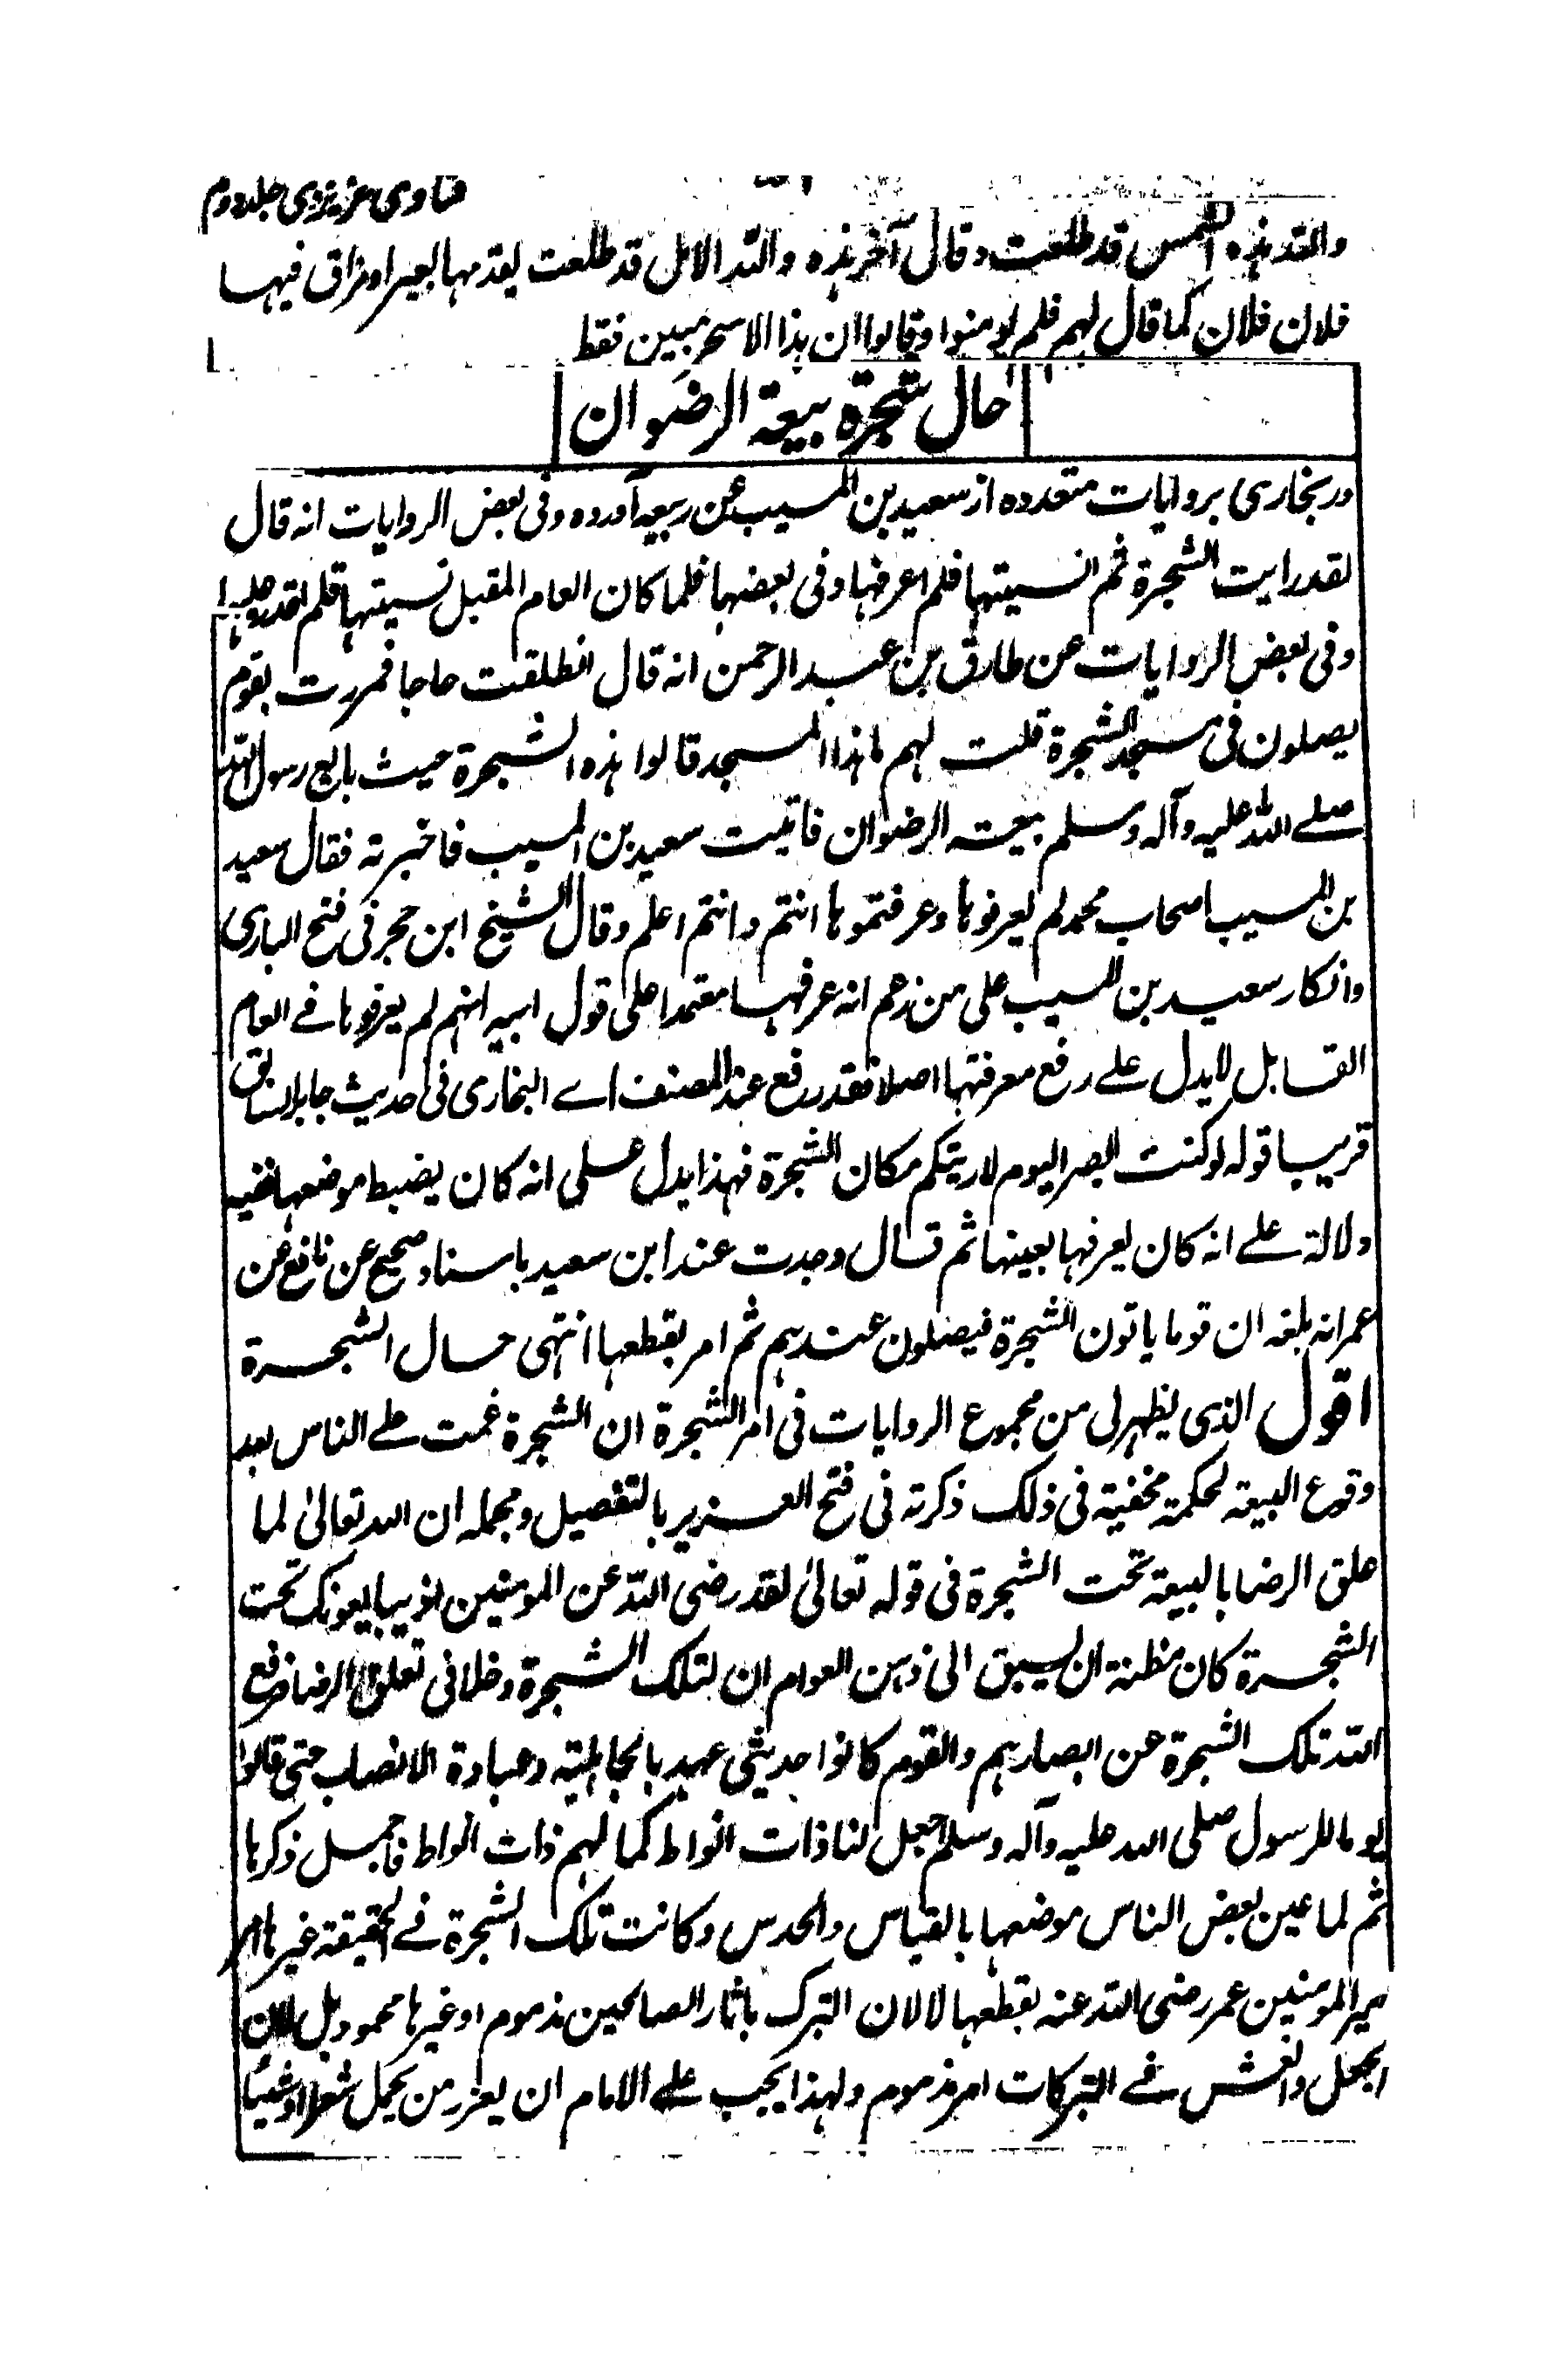 فتاوی عزیزی جلد دوم
والله هذه الشمس قد طلعت وقال آخر هذه والله الابل قد طلعت يقدمها بعير اورق فيها
فلان فلان كما قال لهم فلم يومنوا وقالوا ان هذا الا سحر مبين فقط
حال شجرة بيعة الرضوان
در بخاری بروایات متعدده از سعید بن المسیب عن ربیعه آورده وفی بعض الروايات انه قال
لقد رايت الشجرة ثم انسيتها فلم اعرفها وفى بعضها فلما كان العام المقبل نسيتها فلم اقدر عليها
وفى بعض الروايات عن طارق بن عبد الرحمن انه قال انطلقت حاجا فمررت بقوم
يصلون فى مسجد الشجرة قلت لهم ما هذا المسجد قالوا هذه الشجرة حيث بايع رسول الله
صلے الله عليه وآله وسلم بيعة الرضوان فاتيت سعيد بن المسيب فاخبرته فقال سعيد
بن المسيب اصحاب محمد لم يعرفوها وعرفتموها انتم وانتم اعلم وقال الشيخ ابن حجر فى فتح البارى
وانكار سعيد بن المسيب على من زعم انه عرفها معتمدا على قول ابيه انهم لم يعرفوها فے العام
القابل لا يدل علے رفع معرفتها اصلا فقد رفع عند المصنف اے البخارى فى حديث جابر السابق
قريبا قوله لو كنت ابصر اليوم لاريتكم مكان الشجرة فهذا يدل على انه كان يضبط موضعها ففيه
دلالة علے انه كان يعرفها بعينها ثم قال وجدت عند ابن سعيد باسناد صحيح عن نافع عن
عمر انه بلغه ان قوما ياتون الشجرة فيصلون عندهم ثم امر بقطعها انتهى حال الشجرة
اقول الذى يظهر لى من مجموع الروايات فى امر الشجرة ان الشجرة غمت علے الناس بعد
وقوع البيعة لحكمة مخفية فى ذلك ذكرته فى فتح العزيز بالتفصيل ومجمله ان الله تعالىٰ لما
علق الرضا بالبيعة تحت الشجرة فى قوله تعالىٰ لقد رضى الله عن المومنين اذ يبايعونك تحت
الشجرة كان مظنة ان يسبق الى ذهن العوام ان لتلك الشجرة دخلا فى تعلق الرضا فرفع
الله تلك الشجرة عن ابصارهم والقوم كانوا حديثى عهد بالجاهلية وعبادة الانصاب حتى قالوا
يوما للرسول صلى الله عليه وآله وسلم اجعل لنا ذات انواط كما لهم ذات انواط فاجمل ذكرها
ثم لما عين بعض الناس موضعها بالقياس والحدس وكانت تلك الشجرة فے الحقيقة غيرها امر
امير المومنين عمر رضى الله عنه بقطعها لا لان التبرك باثار الصالحين مذموم او غيرها محمود بل لان
الجعل والغش فے التبركات امر مذموم ولهذا يجب علے الامام ان يعزر من يحمل شعرا او شيئا